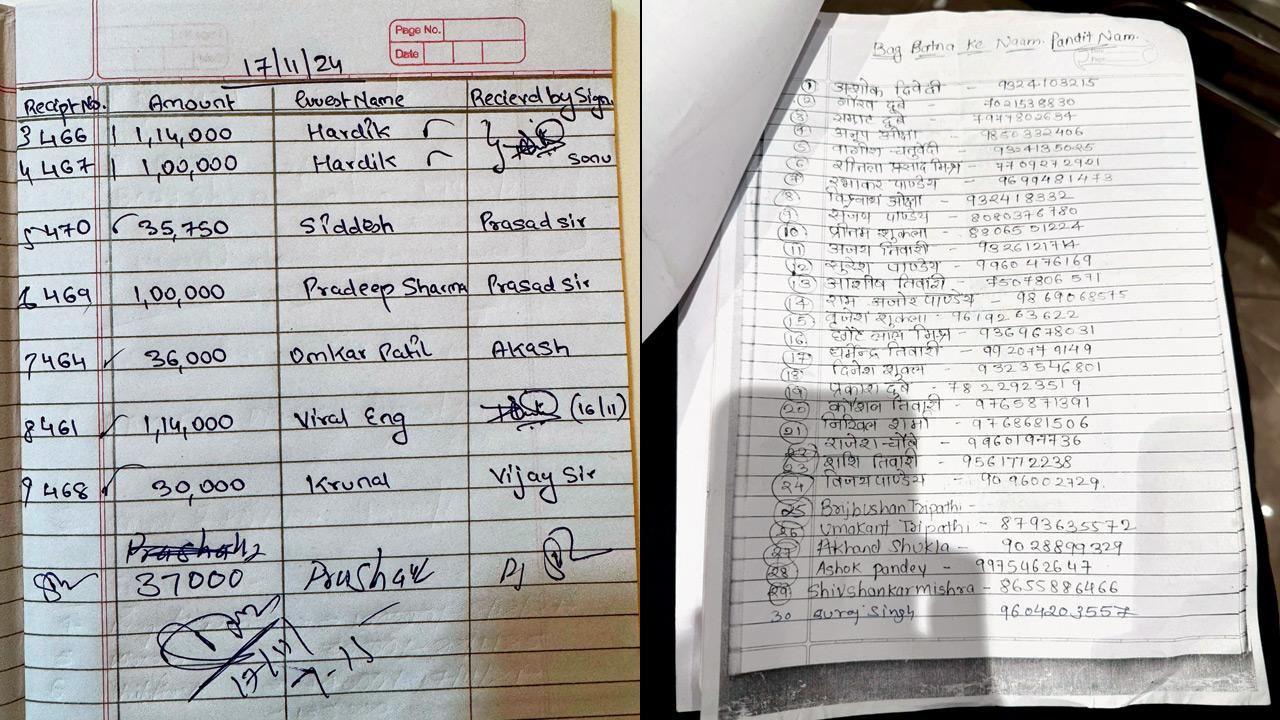 Page No.
Date
17/11/24
Recipt No. Amount Evvest Name Recieved by Sign.
3 466 1,14,000 Hardik
4 467 1,00,000 Hardik sonu
5 470 35,750 Siddesh Prasad sir
6 469 1,00,000 Pradeep Sharma Prasad sir
7 464 36,000 Omkar Patil Akash
8 461 1,14,000 Viral Eng (16/11)
9 468 30,000 Krunal Vijay Sir
37000
17/11
7-15
Bag Batna ke Naam. Pandit Nam.
(1) अशोक द्विवेदी - 9324103215
(2) गौरव दुबे - 7021538830
(3) सम्राट दुबे - 7977802634
(4) अनुप ओझा - 9850332406
(5) वागीश चतुर्वेदी - 9324135025
(6) शीतला प्रसाद मिश्रा - 7709272921
(7) रमाकर पाण्डेय - 9699481473
(8) विश्वनाथ ओझा - 932418332
(9) संजय पाण्डेय - 8080376780
(10) प्रीतम शुक्ला - 8806551224
(11) अजय तिवारी - 9326121714
(12) सुरेश पाण्डेय - 9960476169
(13) आशीष तिवारी - 7507806571
(14) राम अजोर पाण्डेय - 9869068575
(15) वृजेश शुक्ला - 9619263622
(16) छोटे लाल मिश्रा - 9369678031
(17) धर्मेन्द्र तिवारी - 9920779149
(18) दिनेश शुक्ल - 9323546801
(19) प्रकाश दुबे - 7822923519
(20) कौशल तिवारी - 9765871391
(21) निखिल शर्मा - 9768681506
(22) राजेश चौबे - 9960197736
(23) शशि तिवारी - 9561772238
(24) विजय पाण्डेय - 9096002729.
(25) Brijbushan Tripathi -
(26) Umakant Tripathi - 8793635572
(27) Akhand Shukla - 9028899329
(28) Ashok pandey - 9975462647
(29) Shivshankarmishra - 8655886466
30 Suraj Singh 9604203557